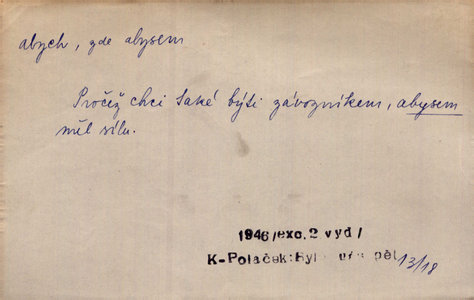 abych, zde abysem
Pročež chci také býti závozníkem, abysem
měl sílu.
1946/exc. 2 vyd/
K-Poláček: Byl pět 13/18